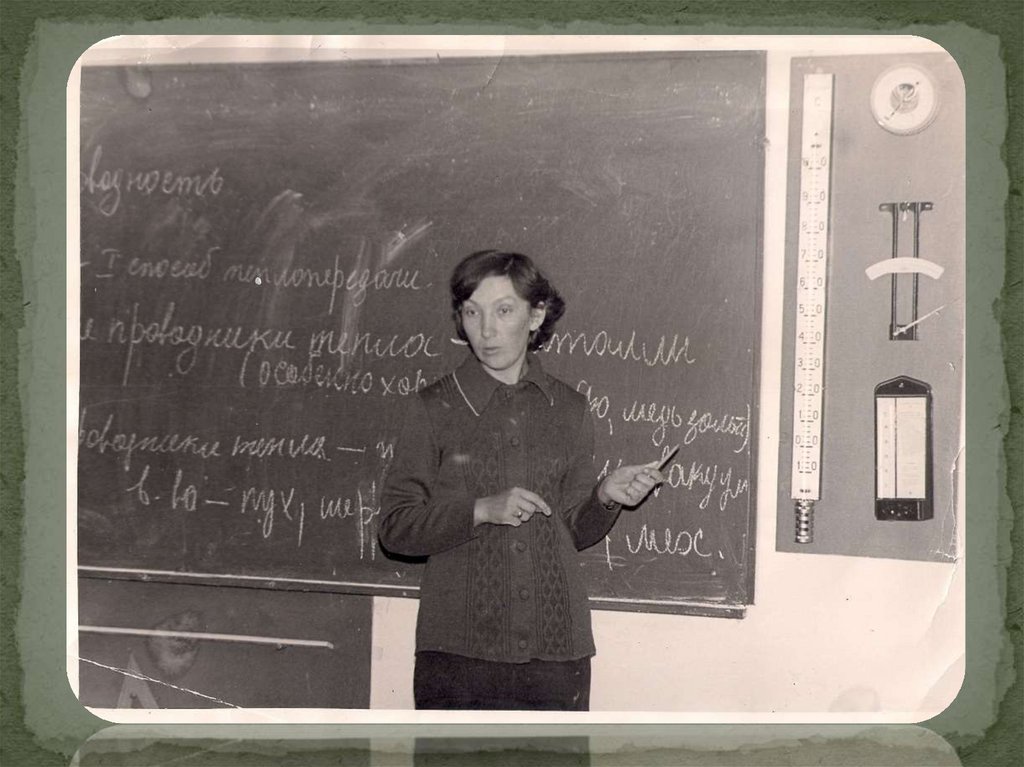 водность
- I способ теплопередачи.
е проводники тепла - таллы
(особенно хор о, медь золото)
роводники тепла – вакуум
в-во – пух, шер , мех.